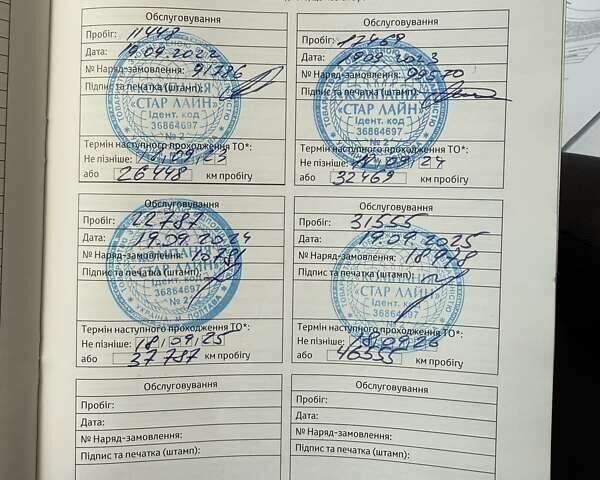 Обслуговування
Пробіг: 11448
Дата: 19.09.2022
№ Наряд-замовлення: 91786
Підпис та печатка (штамп):
«СТАР ЛАЙН»
Ідент. код
36864697
№ 2
Термін наступного проходження ТО*:
Не пізніше: 18/09/23
або 26448 км пробігу
Обслуговування
Пробіг: 17469
Дата: 19.09.2023
№ Наряд-замовлення: 99570
Підпис та печатка (штамп):
«СТАР ЛАЙН»
Ідент. код
36864697
№ 2
Термін наступного проходження ТО*:
Не пізніше: 18/09/24
або 32469 км пробігу
Обслуговування
Пробіг: 22787
Дата: 19.09.2024
№ Наряд-замовлення: 10781
Підпис та печатка (штамп):
КОМПАНІЯ
«СТАР ЛАЙН»
Ідент. код
36864697
№ 2
УКРАЇНА м. ПОЛТАВА
Термін наступного проходження ТО*:
Не пізніше: 18/09/25
або 37787 км пробігу
Обслуговування
Пробіг: 31555
Дата: 19.09.2025
№ Наряд-замовлення: 18978
Підпис та печатка (штамп):
«СТАР ЛАЙН»
Ідент. код
36864697
Термін наступного проходження ТО*:
Не пізніше: 18/09/26
або 46555 км пробігу
Обслуговування
Пробіг:
Дата:
№ Наряд-замовлення:
Підпис та печатка (штамп):
Обслуговування
Пробіг:
Дата:
№ Наряд-замовлення:
Підпис та печатка (штамп):